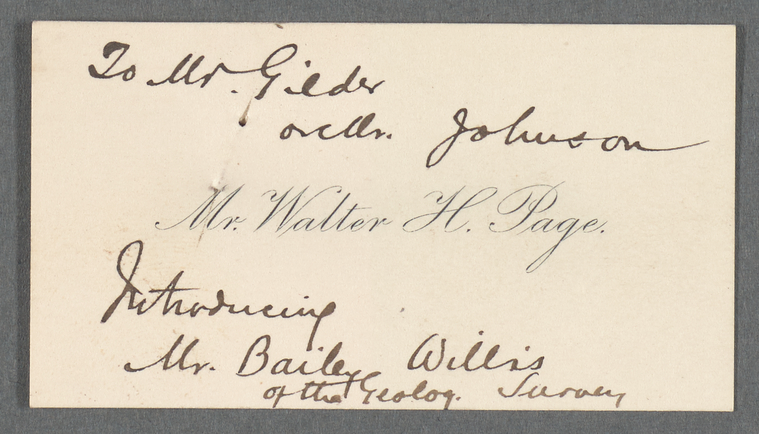 To Mr. Gilder
or Mr. Johnson
Mr. Walter H. Page.
Introducing
Mr. Bailey Willis
of the Geolog. Survey